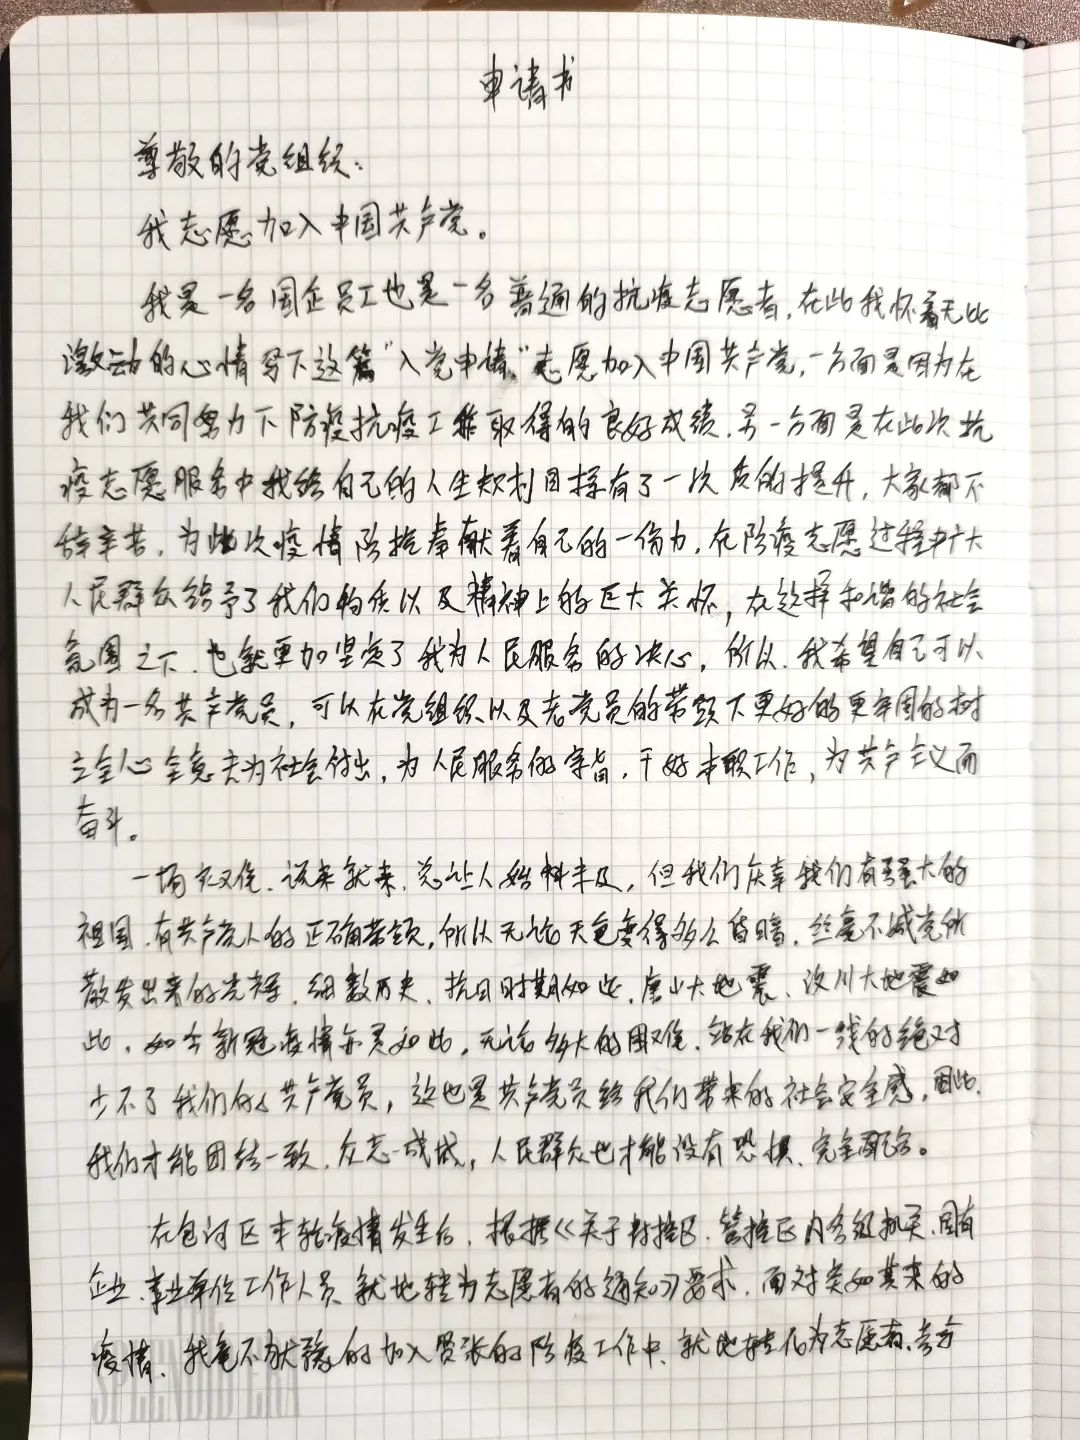 申请书
尊敬的党组织：
我志愿加入中国共产党。
我是一名国企员工也是一名普通的抗疫志愿者，在此我怀着无比
激动的心情写下这篇“入党申请”志愿加入中国共产党，一方面是因为在
我们共同努力下防疫抗疫工作取得的良好成绩，另一方面是在此次抗
疫志愿服务中我给自己的人生规划目标有了一次质的提升，大家都不
辞辛苦，为此次疫情防控奉献着自己的一份力，在防疫志愿过程中广大
人民群众给予了我们物质以及精神上的巨大关怀，在这样和谐的社会
氛围之下，也就更加坚定了我为人民服务的决心，所以，我希望自己可以
成为一名共产党员，可以在党组织以及老党员的带领下更好的更牢固的树
立全心全意去为社会付出，为人民服务的宗旨，干好本职工作，为共产主义而
奋斗。
一场灾难，说来就来，总让人始料未及，但我们庆幸我们有强大的
祖国，有共产党人的正确带领，所以无论天色变得多么昏暗，丝毫不减党所
散发出来的光辉，细数历史，抗日时期如此，唐山大地震、汶川大地震如
此，如今新冠疫情亦是如此，无论多大的困难，站在我们一线的绝对
少不了我们的共产党员，这也是共产党员给我们带来的社会安全感，因此，
我们才能团结一致，众志成城，人民群众也才能没有恐惧，完全配合。
在包河区本轮疫情发生后，根据《关于封控区、管控区内各级机关、国有
企业、事业单位工作人员就地转为志愿者的通知》要求，面对突如其来的
疫情，我毫不犹豫的加入紧张的防疫工作中，就地转化为志愿者，
SPLENDID ERA